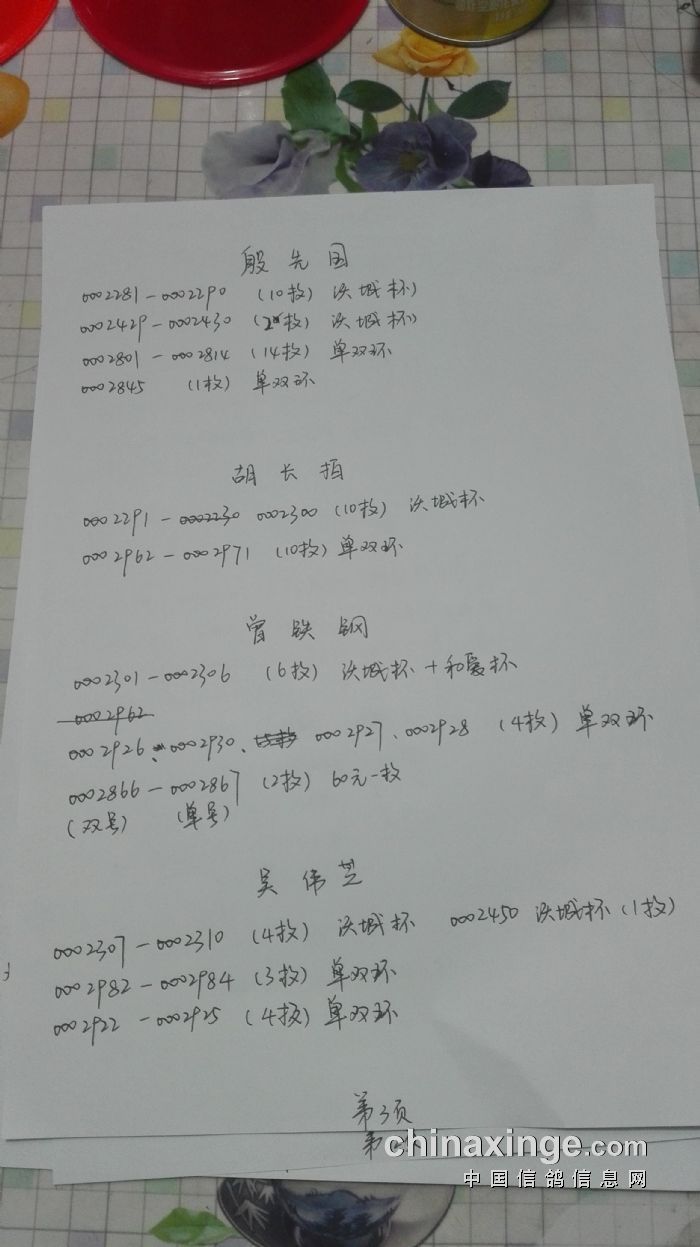 殷先国
0002281-0002290 (10枚) 洪城杯)
0002429-0002430 (2枚) 洪城杯)
0002801-0002814 (14枚) 单双环
0002845 (1枚) 单双环
胡长
0002291-0002230 0002300 (10枚) 洪城杯
0002962-0002971 (10枚) 单双环
曾铁钢
0002301-0002306 (6枚) 洪城杯+和爱杯
0002962
0002926、0002930、 0002927、0002928 (4枚) 单双环
0002866-0002867 (2枚) 60元一枚
(双号) (单号)
吴伟芝
0002307-0002310 (4枚) 洪城杯 0002450 洪城杯(1枚)
0002982-0002984 (3枚) 单双环
0002922-0002925 (4枚) 单双环
第3页
第
chinaxinge.com
中国信鸽信息网